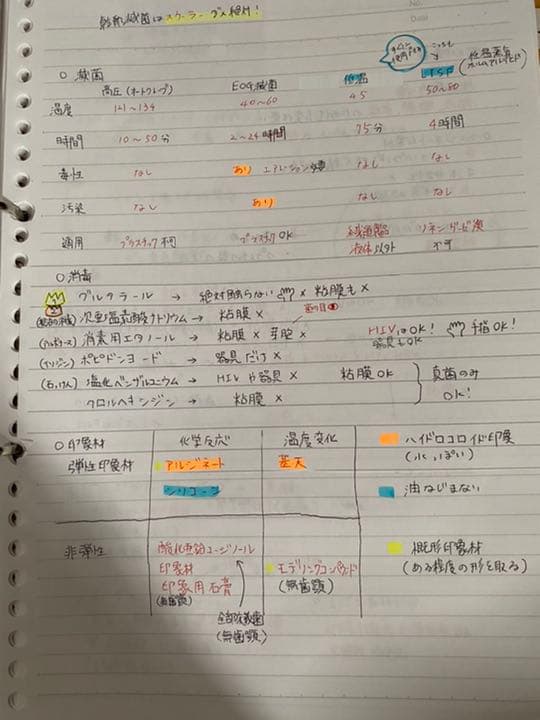 乾熱滅菌はスケーラー ブス絶対!
○ 滅菌
高圧(オートクレーブ) EOG滅菌 低温 LTSF (低温蒸気ホルムアルデヒド)
温度 121〜134 40〜60 45 50〜80
時間 10〜50分 2〜24時間 75分 4時間
毒性 なし あり エアレーション必要 なし なし
汚染 なし あり なし なし
適用 プラスチック不可 プラスチックOK 繊維 液体以外 リネン 不可
○消毒
グルタラール → 絶対触らない × 粘膜も×
次亜塩素酸ナトリウム → 粘膜×
消毒用エタノール → 粘膜× 芽胞× HIVはOK! 手指OK!
器具もOK
(イソジン) ポビドンヨード → 器具だけ×
(石けん) 塩化ベンザルコニウム → HIVや器具× 粘膜OK
クロルヘキシジン → 粘膜×
真菌のみ OK!
○印象材 化学反応 温度変化
弾性印象材 アルジネート 寒天
シリコーン
ハイドロコロイド印象
(水っぽい)
油なじまない
非弾性 酸化亜鉛ユージノール
印象材
印象用石膏
(無歯顎)
モデリングコンパウンド
(無歯顎)
概形印象材
(ある程度の形を取る)
(無歯顎)